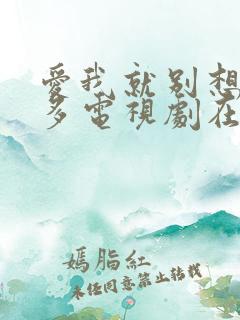 愛我就别想
多電視劇在
嫣脂紅
未任同意禁止转载